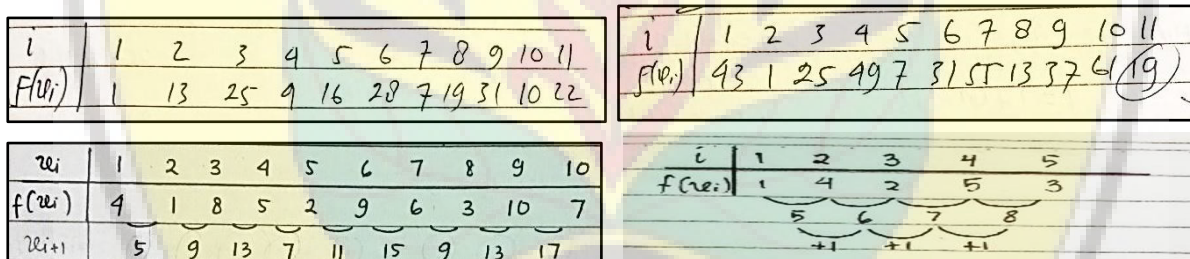 i 1 2 3 4 5 6 7 8 9 10 11
f(vi) 1 13 25 9 16 28 7 19 31 10 22
i 1 2 3 4 5 6 7 8 9 10 11
f(vi) 43 1 25 49 7 31 55 13 37 61 19
xi 1 2 3 4 5 6 7 8 9 10
f(xi) 4 1 8 5 2 9 6 3 10 7
xi+1 5 9 13 7 11 15 9 13 17
i 1 2 3 4 5
f(xi) 1 4 2 5 3
5 6 7 8
+1 +1 +1